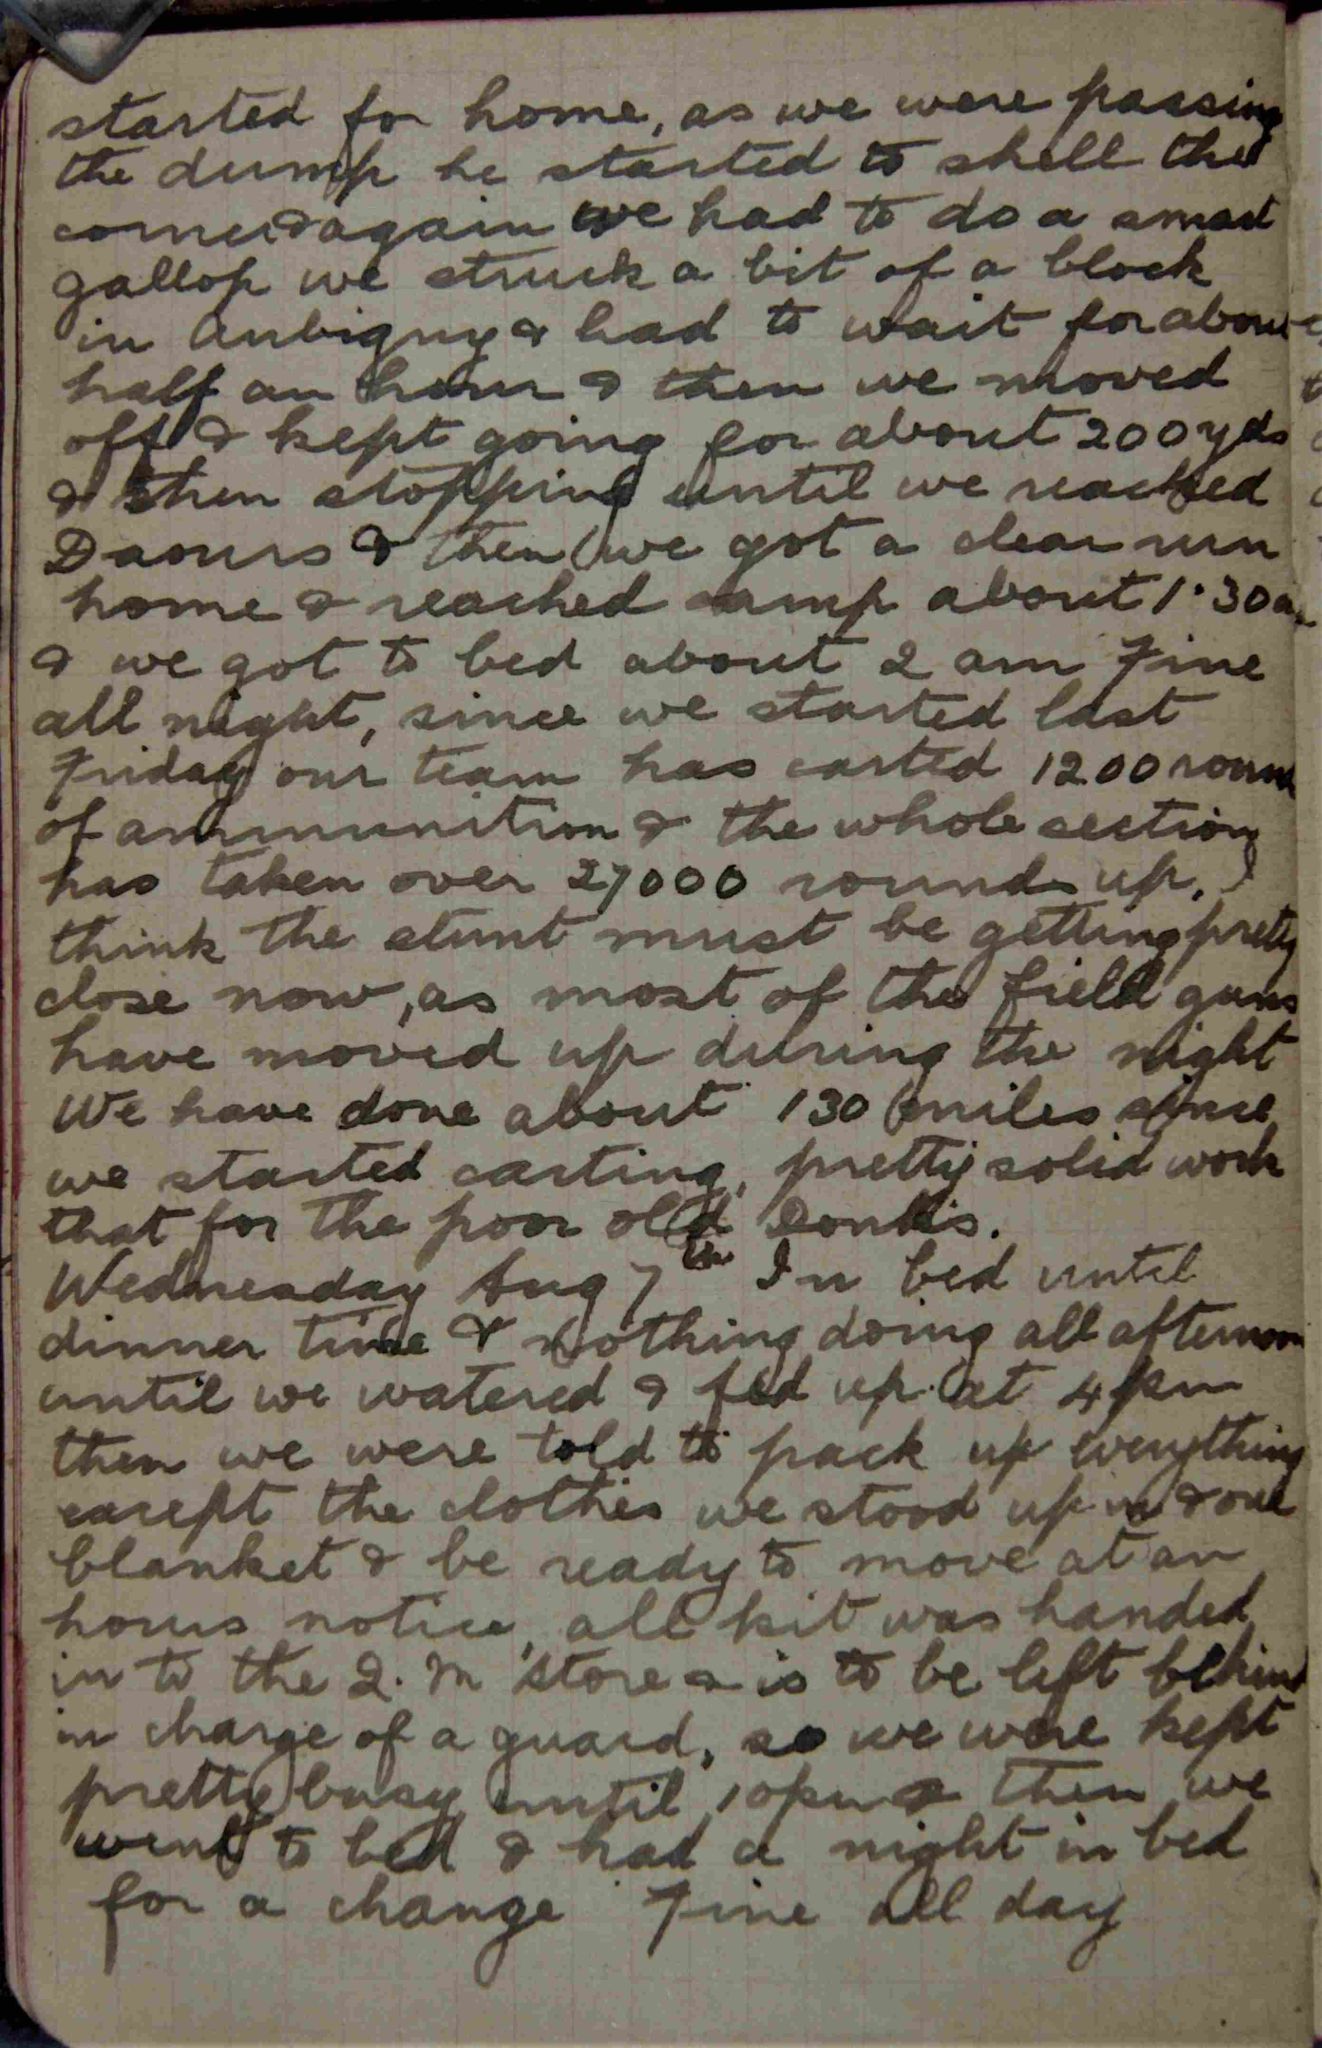 started for home, as we were passing
the dump he started to shell the
corner & again we had to do a smart
gallop we struck a bit of a block
in Aubigny & had to wait for about
half an hour & then we moved
off & kept going for about 200 yds
& then stopping until we reached
Daours & then we got a clear run
home & reached camp about 1.30 am
& we got to bed about 2 am Fine
all night, since we started last
Friday our team has carted 1200 rounds
of ammunition & the whole section
has taken over 27000 rounds up, I
think the stunt must be getting pretty
close now, as most of the field guns
have moved up during the night
We have done about 130 miles since
we started carting, pretty solid work
that for the poor old donks.
Wednesday Aug 7th In bed until
dinner time & nothing doing all afternoon
until we watered & fed up at 4 pm
then we were told to pack up everything
except the clothes we stood up in & one
blanket & be ready to move at an
hours notice, all kit was handed
in to the Q.M store & is to be left behind
in charge of a guard, so we were kept
pretty busy until 10 pm & then we
went to bed & had a night in bed
for a change Fine all day